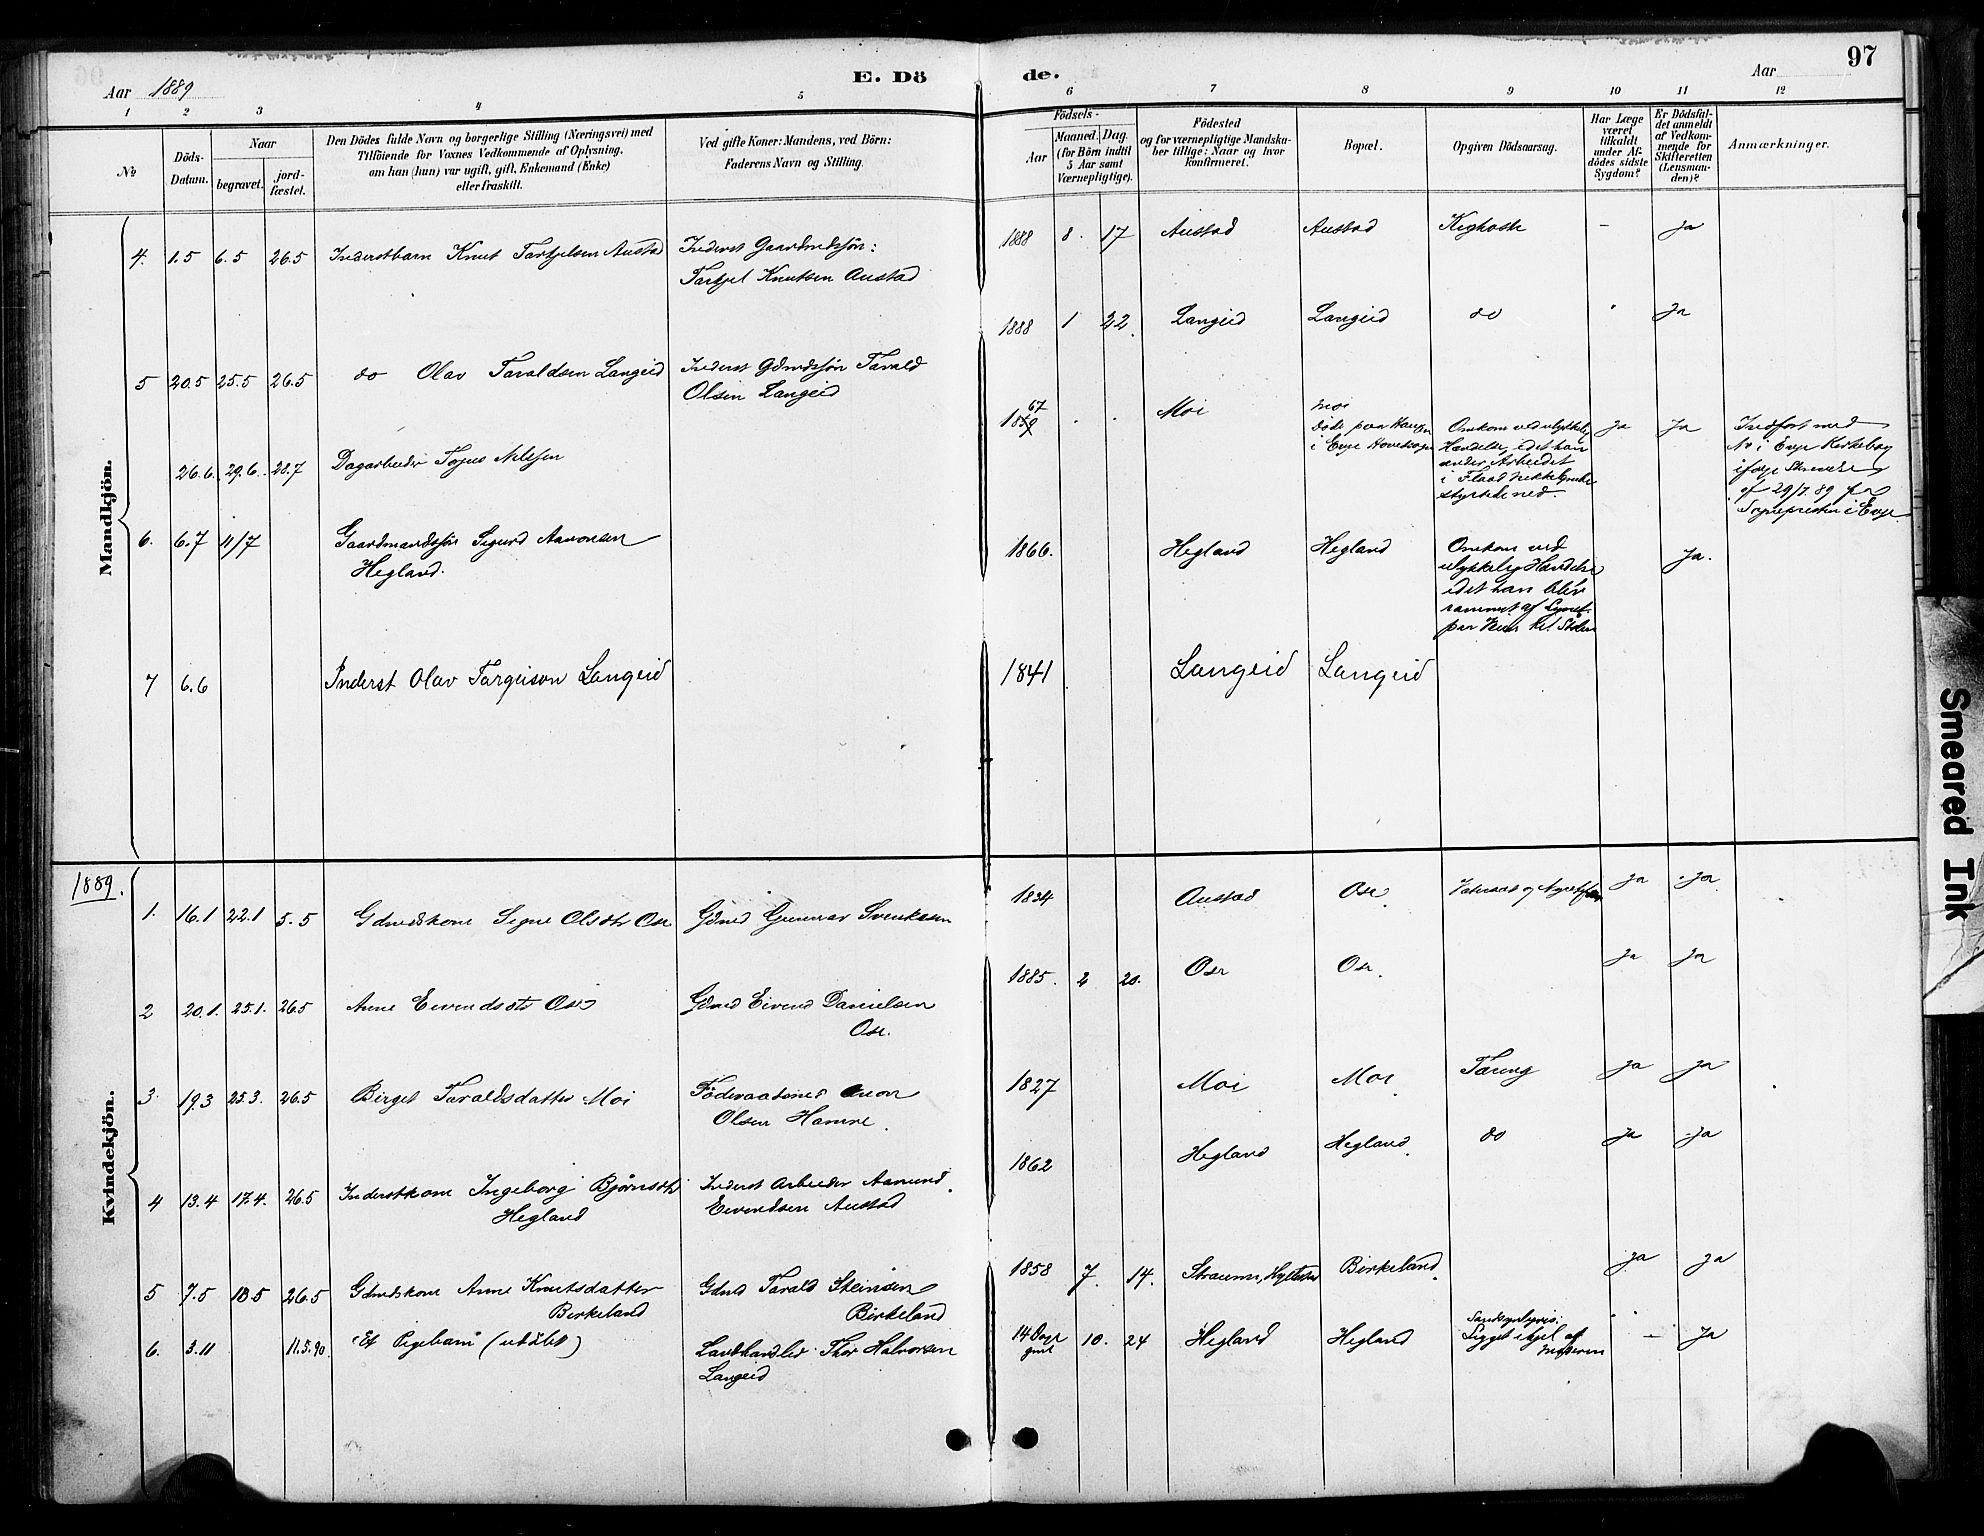 97
Aar 1889
E. Dö
de.
Aar
1 2 3 4 5 6 7 8 9 10 11 12
No
Döds-Datum.
Naar
begravet.
jord-fæstet.
Den Dödes fulde Navn og borgerlige Stilling (Næringsvei) med
Tilföiende for Voxnes Vedkommende af Oplysning,
om han (hun) var ugift, gift, Enkemand (Enke)
eller fraskilt.
Ved gifte Koner: Mandens, ved Börn:
Faderens Navn og Stilling.
Födsels-
Aar
Maaned. Dag.
(for Börn indtil
5 Aar samt
Værnepligtige).
Födested
og for værnepligtige Mandska-
ber tillige: Naar og hvor
konfirmeret.
Bopæl.
Opgiven Dödsaarsag.
Har Læge
været
tilkaldt
under Af-
dödes sidste
Sygdom?
Er Dödsfal-
det anmeldt
af Vedkom-
mende for
Skifteretten
(Lensman-
den)?
Anmærkninger.
Mandkjön.
4. 1.5 6.5 26.5 Inderstbarn Knut Tarkjelsen Austad Inderst Gaardmdssøn: 1888 8. 17 Austad Austad Kighoste - Ja
Tarkjel Knutsen Austad
5 20.5 25.5 26.5 do Olav Taraldsen Langeid Inderst Gdmdssøn Tarald 1888 1 22. Langeid Langeid do Ja
Olsen Langeid
26.6. 29.6. 28.7 Dagarbeider Nilssen 67 Moi Moi
Døde paa
i Evje Hovedsogn
Omkom ved ulykkelig
Hændelse, idet han
under Arbeidet
i Flaad
styrtede ned.
Ja Ja
Indført med
No i Evje Kirkebog
ifølge Skrivelse
af 29/7 89 fra
Sognepresten i Evje
6. 6.7 11/7 Gaardmandssøn Sigurd Aanonsen 1866. Hegland Hegland Ja.
Hegland.
Omkom ved
ulykkelig Hændelse
idet han blev
rammet af Lynet
paa
7 6.6 Inderst Olav Targeison Langeid 1841 Langeid Langeid
1889.
Kvindekjön.
1. 16.1 22.1 5.5 Gdmdskone Signe Olsdtr Ose Gdmd Gunnar 1834 Austad Ose Vatersot og Ja Ja
2 20.1. 25.1. 26.5 Anne Eivendsdtr Ose Gdmd Eivend Danielsen 1885. 2 20. Ose Ose. Ja Ja
Ose.
3. 19.3 25.3. 26.5 Birget Taraldsdatter Moi Föderaadsmd 1827 Moi Moi Tæring Ja Ja
Olsen Hamre.
4 13.4 17.4. 26.5 Inderstkone Ingeborg Bjørnsdtr Inderst Arbeider Aamund 1862 Hegland Hegland. do Ja Ja
Hegland Eivendsen Austad
5 7.5 18.5 26.5 Gdmdskone Anne Knutsdatter Gdmd Tarald Steinsen 1858 7. 14. Straume, Birkeland. Ja Ja
Birkeland Birkeland
6. 3.11 11.5.90 Et Pigebarn (udøbt) Landhandler Thor Halvorsen 14 Dage 10. 24 Hegland Hegland - Ja
Langeid gml
Sandsynligvis:
Ligget ihjel af
Moderen
Smeared Ink